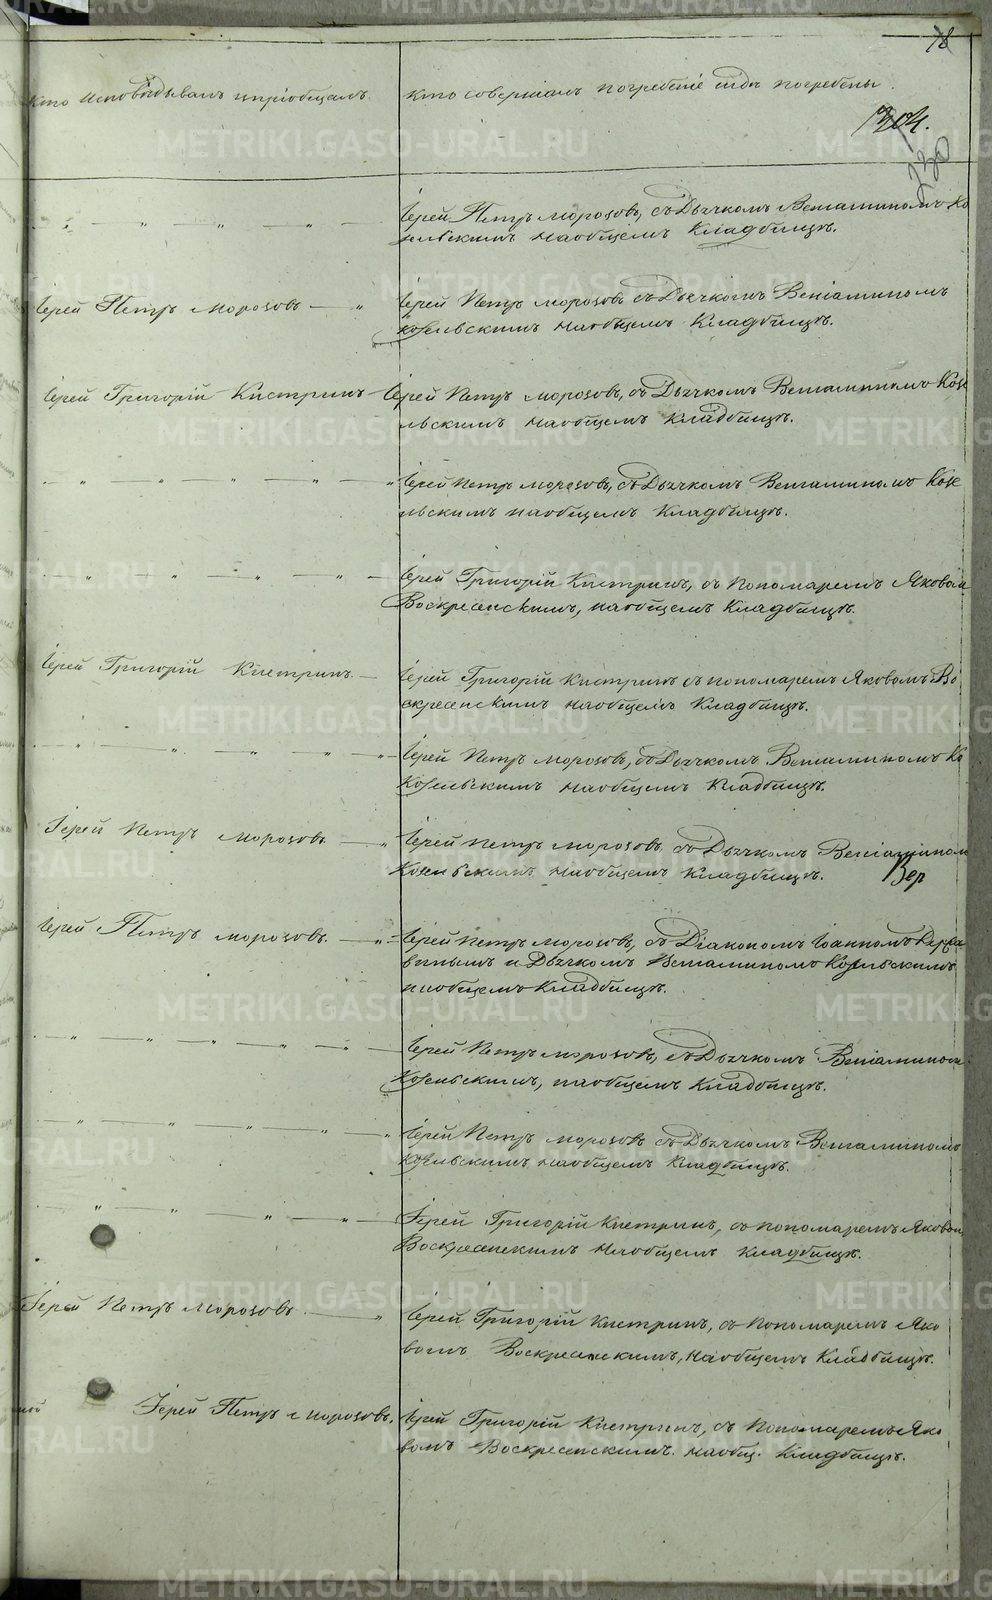 78
Кто исповѣдывалъ и пріобщалъ.
Кто совершалъ погребеніе и гдѣ погребены.
304.
330
Іерей Петръ Морозовъ, съ Дьячкомъ Веніаминомъ Ко
зельскимъ на общемъ Кладбищѣ.
Іерей Петръ Морозовъ
Іерей Петръ Морозовъ съ Дьячкомъ Веніаминомъ
Козельскимъ на общемъ Кладбищѣ.
Іерей Григорій Кистринъ
Іерей Петръ Морозовъ, съ Дьячкомъ Веніаминомъ Козе
льскимъ на общемъ Кладбищѣ.
Іерей Петръ Морозовъ, съ Дьячкомъ Веніаминомъ Козе
льскимъ на общемъ Кладбищѣ.
Іерей Григорій Кистринъ, съ Пономаремъ Яковомъ
Воскресенскимъ, на общемъ Кладбищѣ.
Іерей Григорій Кистринъ.
Іерей Григорій Кистринъ съ Пономаремъ Яковомъ Во
скресенскимъ на общемъ Кладбищѣ.
Іерей Петръ Морозовъ, съ Дьячкомъ Веніаминомъ Ко
Козельскимъ на общемъ Кладбищѣ.
Іерей Петръ Морозовъ
Іерей Петръ Морозовъ съ Дьячкомъ Веніаминомъ
Козельскимъ на общемъ Кладбищѣ. Вер
Іерей Петръ Морозовъ.
Іерей Петръ Морозовъ, съ Діакономъ Іоанномъ
и Дьячкомъ Веніаминомъ Козельскимъ
на общемъ Кладбищѣ.
Іерей Петръ Морозовъ, съ Дьячкомъ Веніаминомъ
Козельскимъ, на общемъ Кладбищѣ.
Іерей Петръ Морозовъ съ Дьячкомъ Веніаминомъ
Козельскимъ, на общемъ Кладбищѣ.
Іерей Григорій Кистринъ, съ Пономаремъ Яковом
Воскресенскимъ на общемъ Кладбищѣ.
Іерей Петръ Морозовъ
Іерей Григорій Кистринъ, съ Пономаремъ Яко
вомъ Воскресенскимъ, на общемъ Кладбищѣ.
Іерей Петръ Морозовъ.
Іерей Григорій Кистринъ, съ Пономаремъ Яко
вомъ Воскресенскимъ. на общ. Кладбищѣ.
METRIKI.GASO-URAL.RU